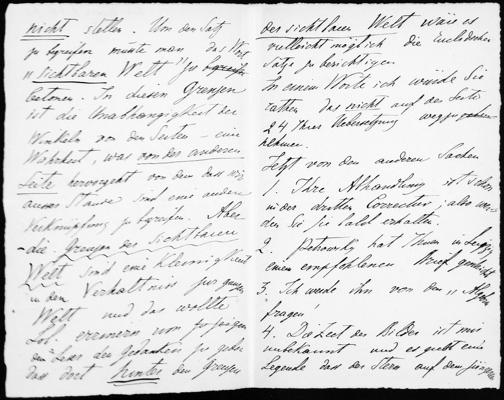 nicht stellen. Um den Satz
zu begreifen musste man das Wort
"sichtbaren Welt" zu begreifen
betonen. In diesen Grenzen
ist die Unabhängigkeit der
Winkeln von den Seiten - eine
Wahrheit, was von der anderen
Seite hervorgeht von dem dass wir
ausser Stande sind eine andere
Verknüpfung zu begreifen. Aber
die Grenzen des Sichtbaren
Welt sind eine Kleinigkeit
in dem Verhältniss zur ganzen
Welt und das wollte
Lob. erinnern um zu zeigen
dem Leser den Gedanken zu geben
dass dort hinter den Grenzen
der sichtbaren Welt wäre es
vielleicht möglich die Euclidischen
Satze zu berichtigen.
In einem Worte ich würde Sie
rathen das nicht auf der Seite
24 Ihrer Uebersetzung
nehmen.
Jetzt von den anderen Sachen
1. Ihre Abhandlung ist schon
in der dritten Correctur; also wer-
den Sie sie bald erhalten.
2. hat Ihnen in
einen empfohlenen Brief geschickt
3. Ich werde ihn von der
fragen
4. Die Zeit des Bildes ist mir
unbekannt und es giebt eine
Legende dass der Stern auf dem